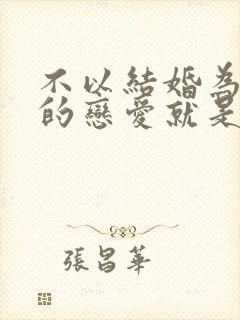 不以結婚為
的戀愛就是
張昌華